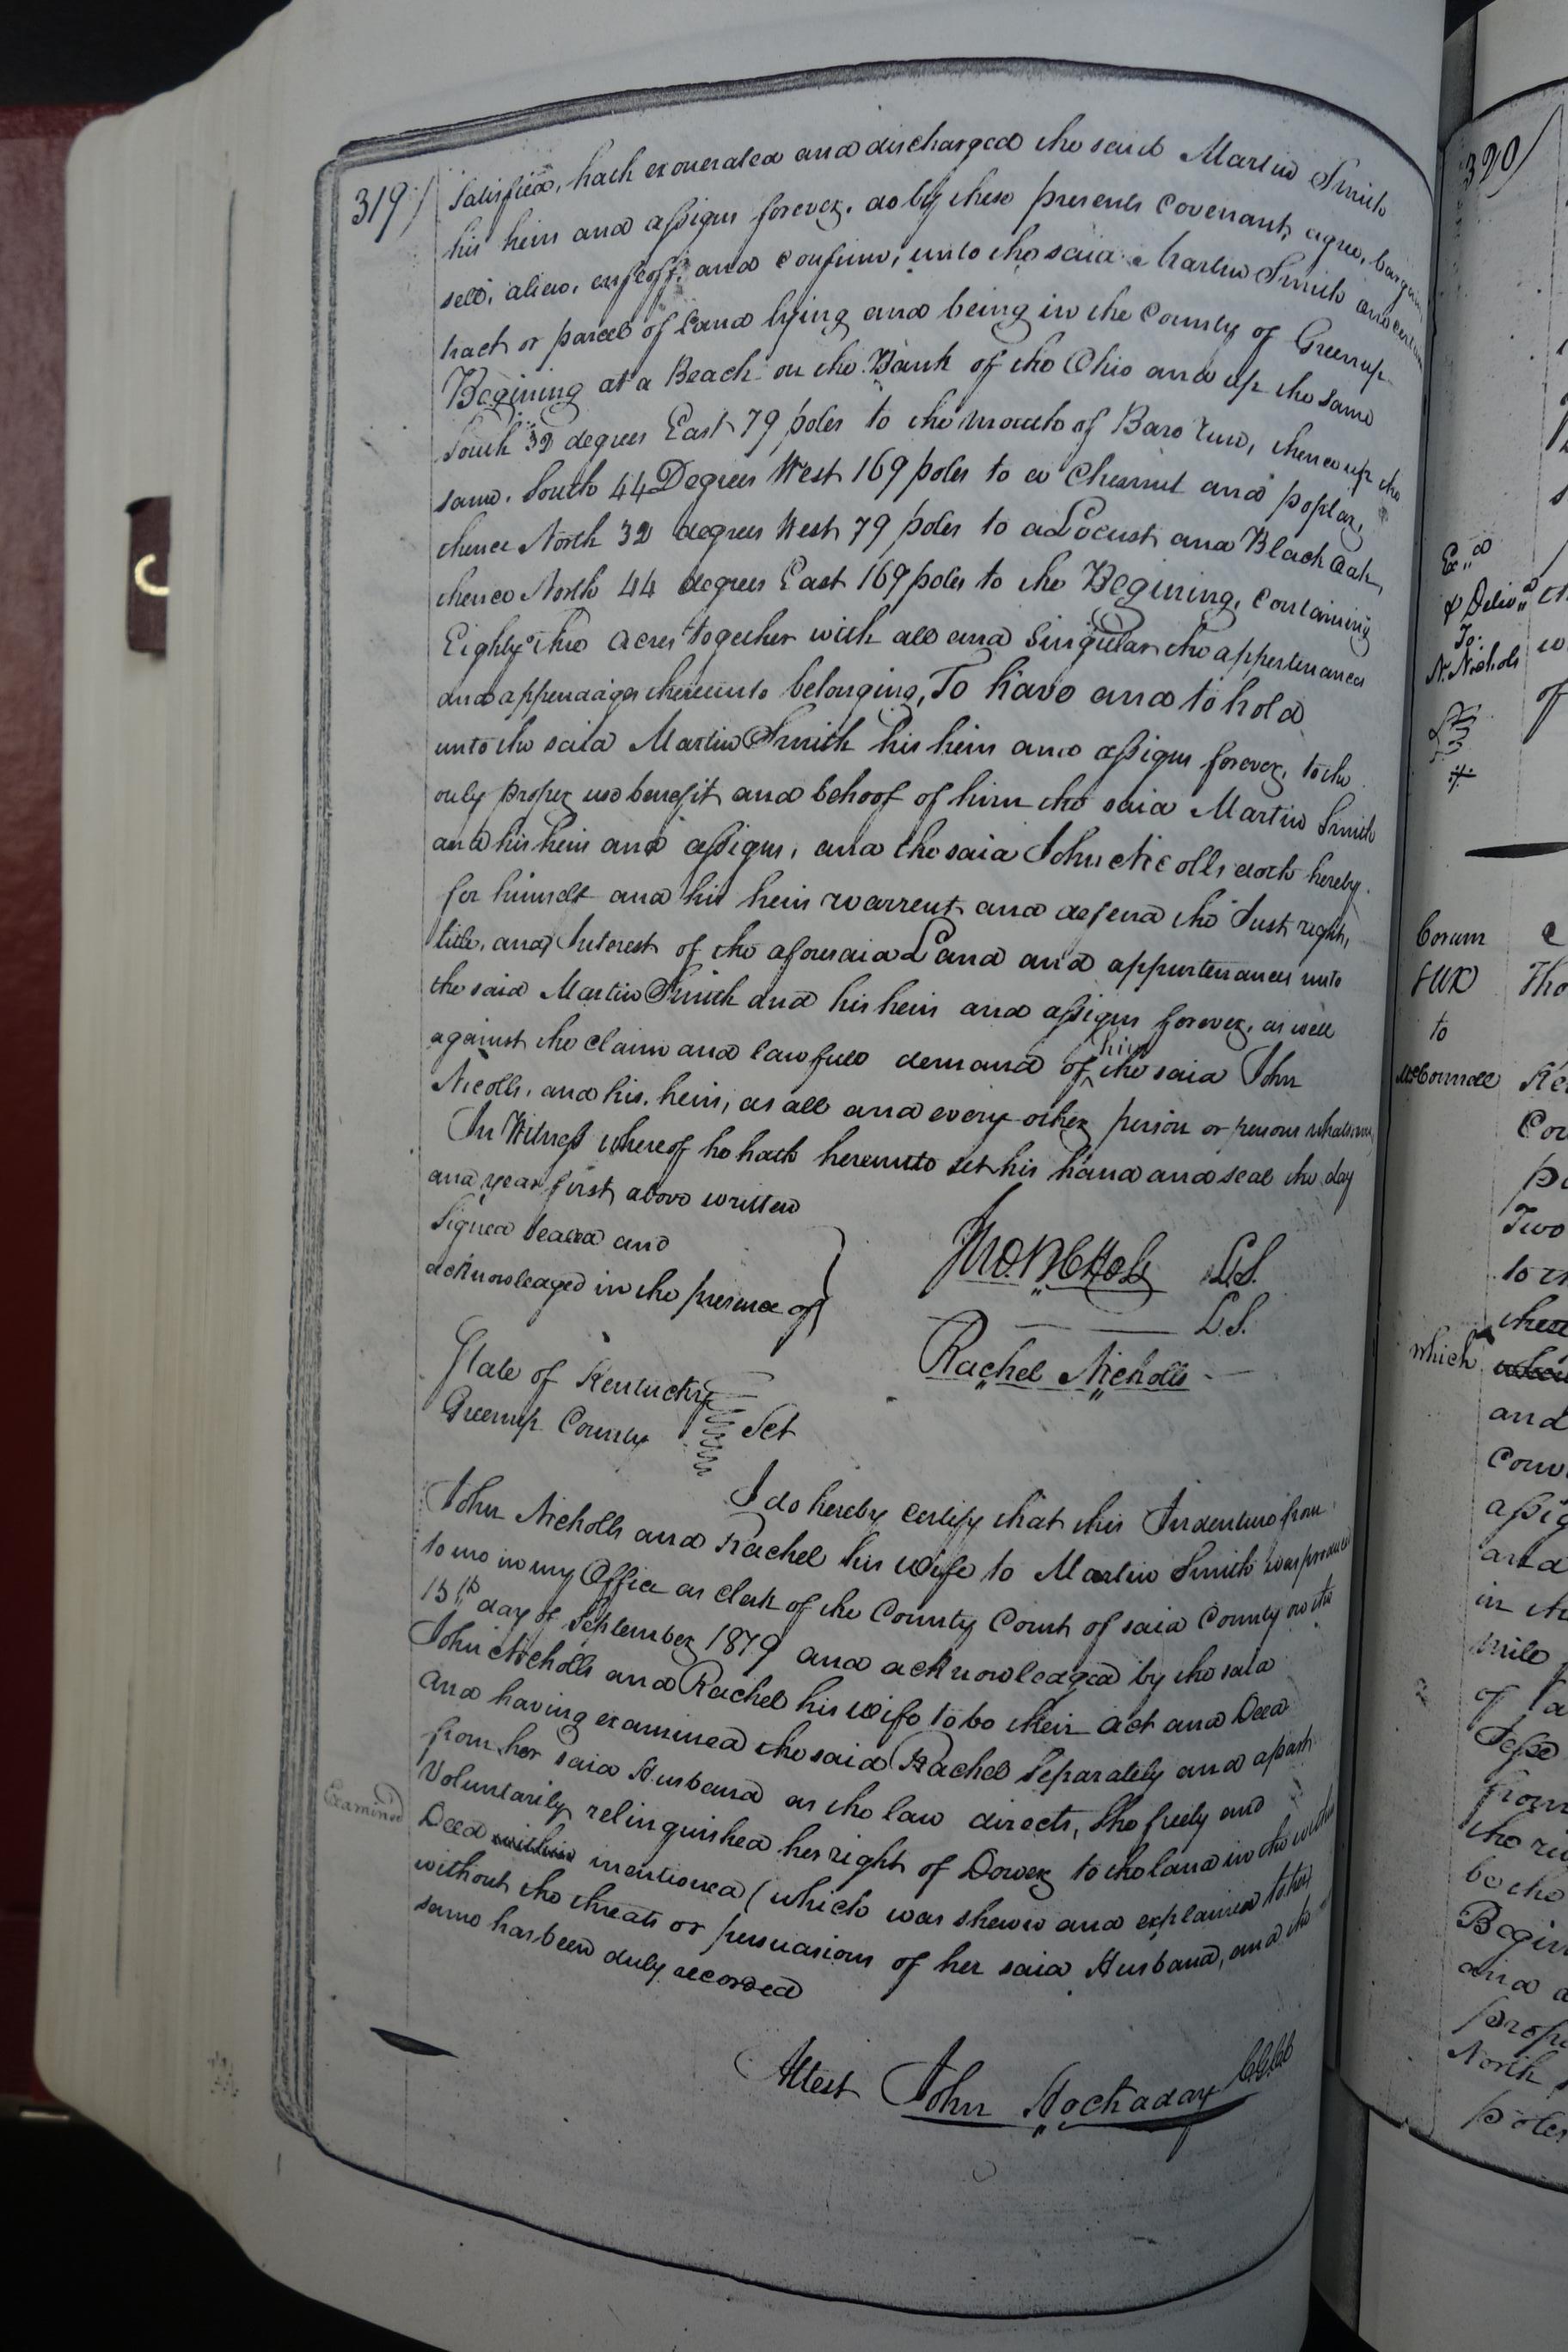 319
Satisfied, hath exonerated and discharged the said Martin Smith
his heirs and assigns forever. do by these presents covenant, agree, bargain
sell, alien, enfeoff, and confirm, unto the said Martin Smith and certain
tract or parcel of Land lying and being in the County of Greenup
Begining at a Beach on the Bank of the Ohio and up the same
South 32 degrees East 79 poles to the mouth of Baro Run, thence up the
same. South 44 Degrees West 169 poles to a Chesnut and poplar,
thence North 32 degrees West 79 poles to a Locust and Black Oak,
thence North 44 degrees East 169 poles to the Begining, Containing
Eighty three Acres together with all and Singular the appertenances
and appendages thereunto belonging, To have and to hold
unto the said Martin Smith his heirs and assigns forever, to the
only proper use benefit and behoof of him the said Martin Smith
and his heirs and assigns, and the said John Nicolls doth hereby
for himself and his heirs warrent and defend the Just right,
title, and Interest of the aforesaid Land and appurtenances unto
the said Martin Smith and his heirs and assigns forever, as well
against the claim and lawfull demand of him the said John
Nicolls, and his heirs, as all and every other person or persons whatsoever,
In Witness whereof he hath hereunto set his hand and seal the day
and year first above written
Signed Sealed and
acknowledged in the presence of
Jno. Nicholls L.S.
L.S.
Rachel Nicholls
State of Kentucky
Greenup County Sct
I do hereby certify that this Indenture from
John Nicholls and Rachel his wife to Martin Smith was produced
to me in my Office as clerk of the County Court of said County on the
15th day of September 1879 and acknowledged by the said
John Nicholls and Rachel his wife to be their Act and Deed
And having examined the said Rachel Separately and apart
from her said Husband as the law directs, She freely and
Voluntarily relinquished her right of Dower to the land in the within
Examined
Deed within mentioned (which was shewn and explained to her)
without the threats or persuasions of her said Husband, and the
same has been duly recorded
Attest John Hockaday C.G.C.C.
320
Ex..d
& Deliv..d
To:
N. Nichols
of
Corum
&UX
to
McConnell
Tho
Two
to
which
and
in
mile
of
Jesse
from
be the
and
North
poles